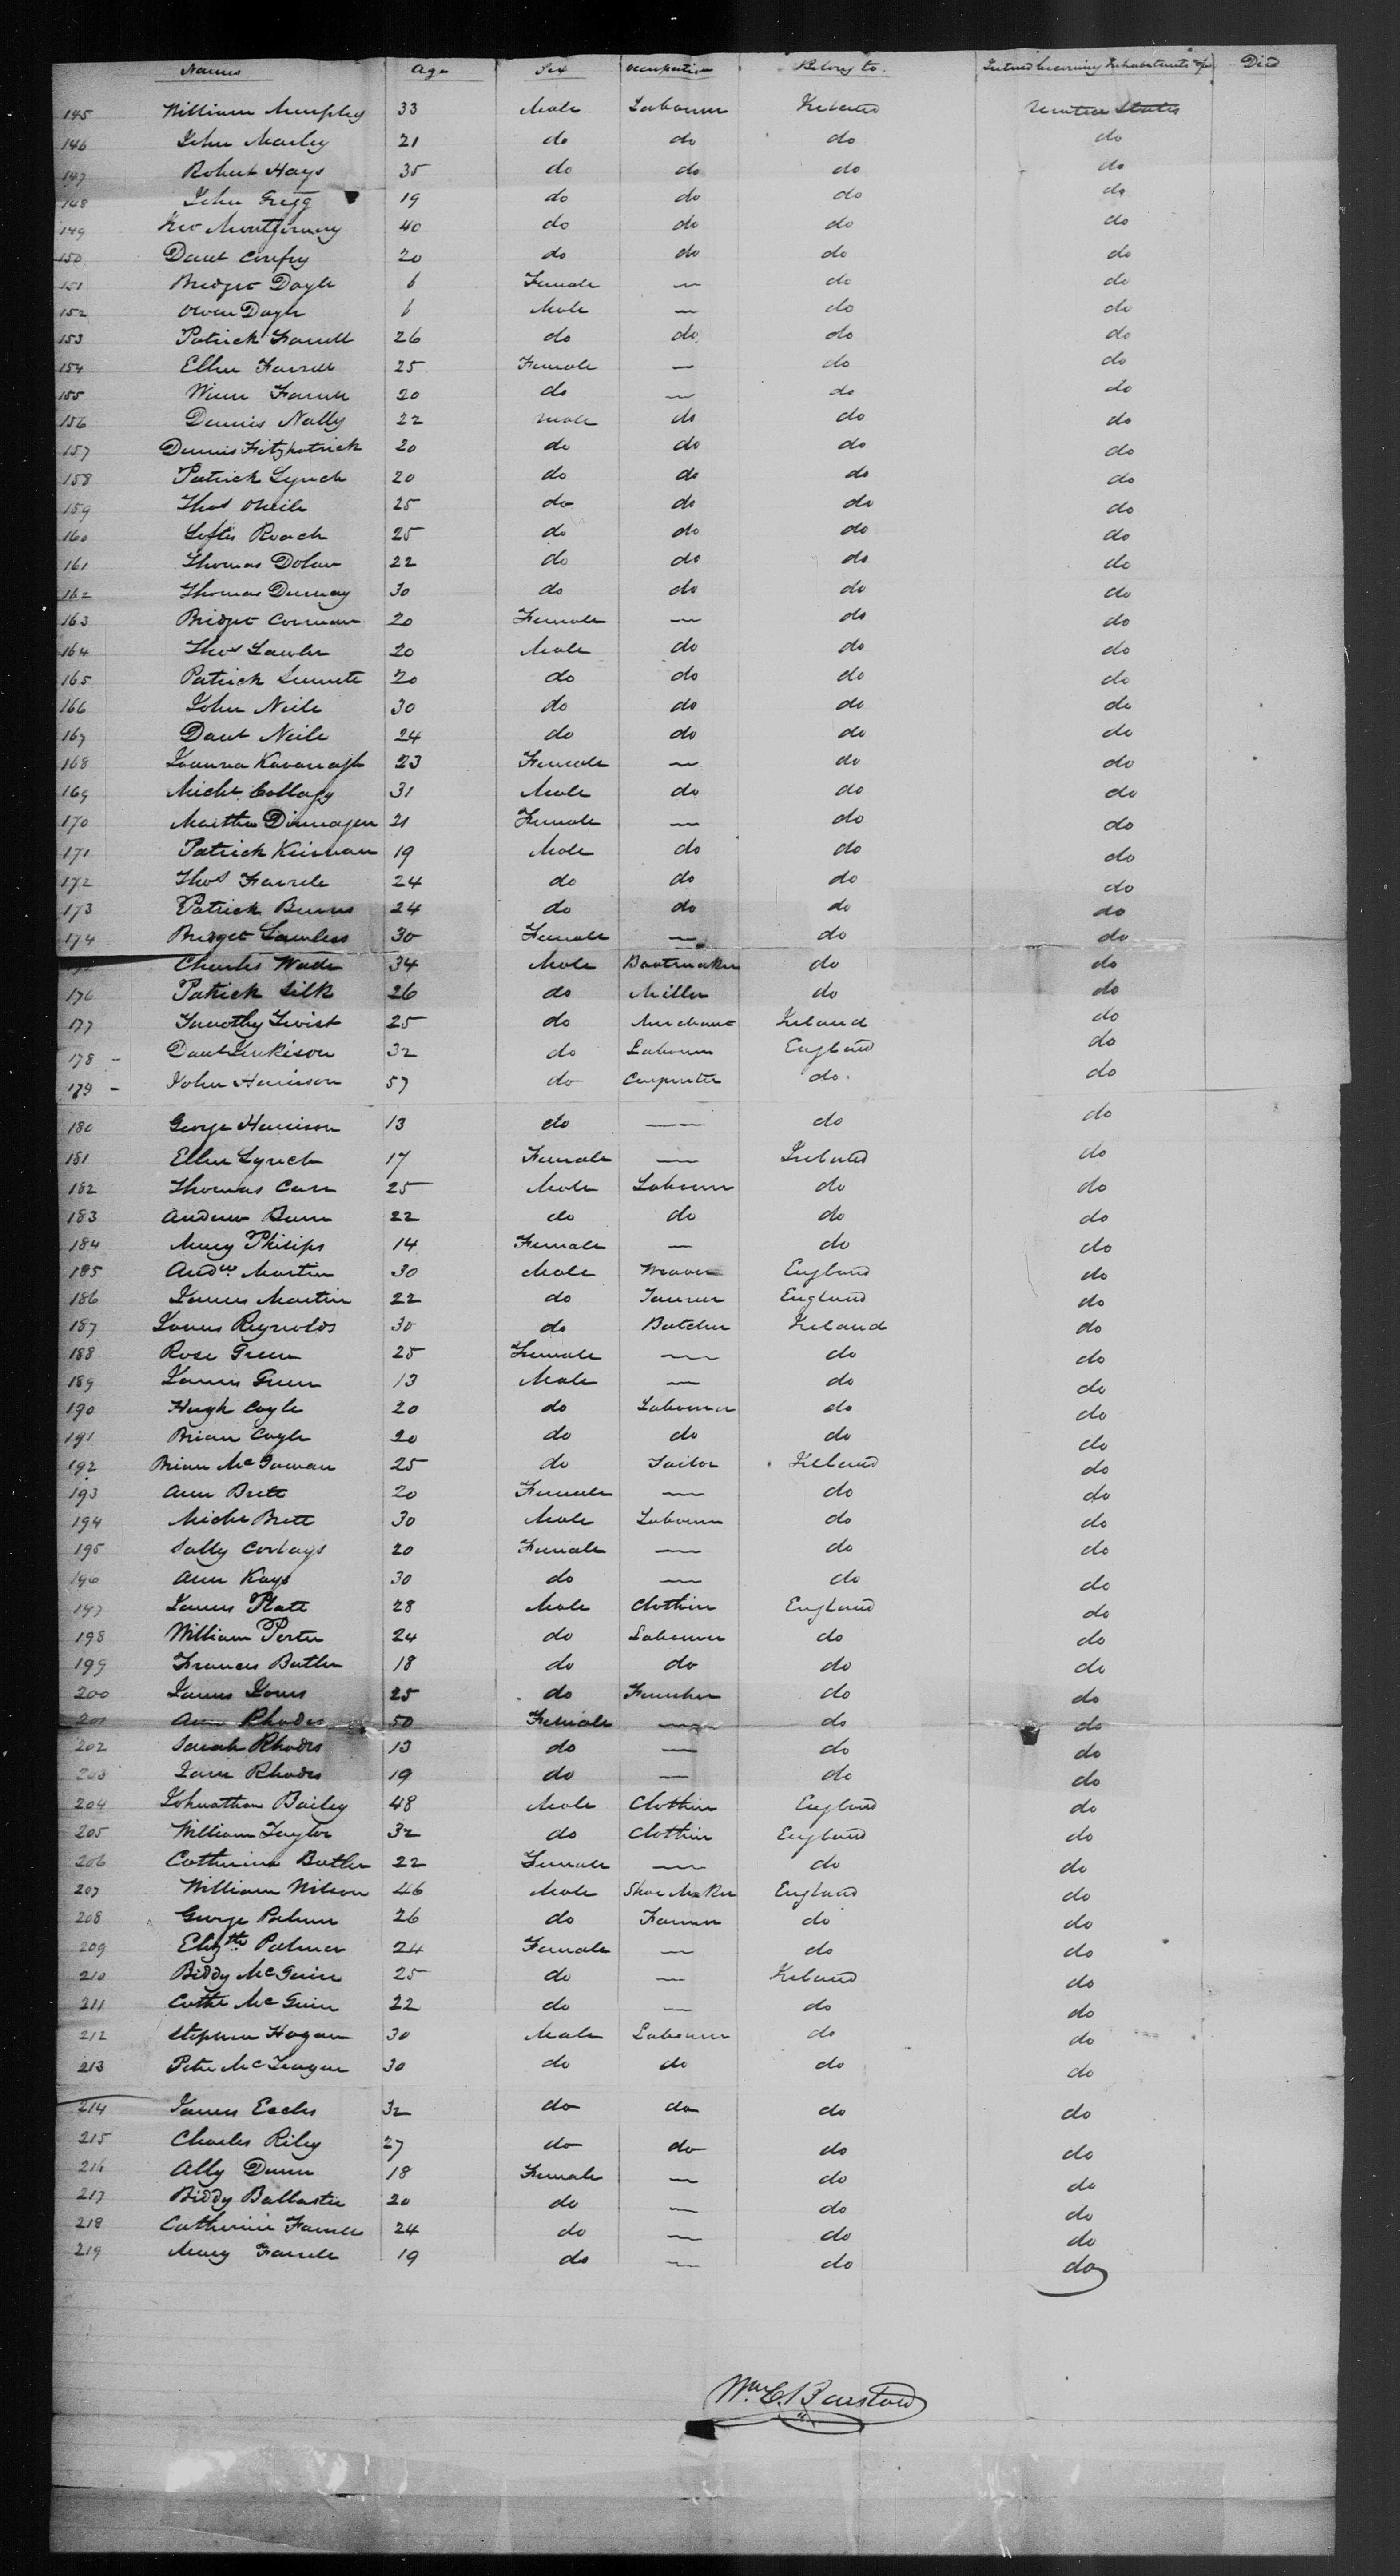 Names Age Sex Occupation Belong to Intend becoming Inhabitants of Died
145 William Murphy 33 Male Labourer Ireland United States
146 John Marley 21 do do do do
147 Robert Hays 35 do do do do
148 John Gregg 19 do do do do
149 Montgomery 40 do do do do
150 Danl 20 do do do do
151 Bridget Doyle 6 Female — do do
152 Owen Doyle 6 Male — do do
153 Patrick Farrell 26 do do do do
154 Ellen Farrell 25 Female — do do
155 Farrell 20 do — do do
156 Dennis Nally 22 Male do do do
157 Dennis Fitzpatrick 20 do do do do
158 Patrick Lynch 20 do do do do
159 Thos ONeile 25 do do do do
160 Loftis Roach 25 do do do do
161 Thomas Dolan 22 do do do do
162 Thomas 30 do do do do
163 Bridget 20 Female — do do
164 Thos Lawler 20 Male do do do
165 Patrick 20 do do do do
166 John Neile 30 do do do do
167 Danl Neile 24 do do do do
168 Joanna Kavanagh 23 Female — do do
169 Michl 31 Male do do do
170 Martha 21 Female — do do
171 Patrick Kiernan 19 Male do do do
172 Thos Farrele 24 do do do do
173 Patrick Burns 24 do do do do
174 Bridget Lawless 30 Female — do do
Charles Wade 34 Male Bootmaker do do
176 Patrick Silk 26 do Miller do do
177 Timothy Twist 25 do Merchant Ireland do
178 - Danl Jenkison 32 do Labourer England do
179 - John Harrison 57 do Carpenter do do
180 George Harrison 13 do — do do
181 Ellen Lynch 17 Female — Ireland do
182 Thomas Carr 25 Male Labourer do do
183 Andrew 22 do do do do
184 Mary Philips 14 Female — do do
185 Andw Martin 30 Male Weaver England do
186 James Martin 22 do England do
187 James Reynolds 30 do Butcher Ireland do
188 Rose Green 25 Female — do do
189 James Green 13 Male — do do
190 Hugh Coyle 20 do Labourer do do
191 Brian Coyle 20 do do do do
192 Brian McGowan 25 do Tailor Ireland do
193 Ann Brett 20 Female — do do
194 Michl Brett 30 Male Labourer do do
195 Sally 20 Female — do do
196 Ann Kays 30 do — do do
197 James Platt 28 Male Clothier England do
198 William Porter 24 do Labourer do do
199 Frances Butler 18 do do do do
200 James 25 do do do
201 Ann Rhodes 50 Female — do do
202 Sarah Rhodes 13 do — do do
203 Jane Rhodes 19 do — do do
204 Johnathan Bailey 48 Male Clothier England do
205 William Taylor 32 do Clothier England do
206 Catherine Butler 22 Female — do do
207 William Wilson 46 Male Shoe Maker England do
208 George Palmer 26 do Farmer do do
209 Elizth Palmer 24 Female — do do
210 Biddy McGuire 25 do — Ireland do
211 Cathe McGuire 22 do — do do
212 Stephen Hogan 30 Male Labourer do do
213 Peter 30 do do do do
214 James Eccles 32 do do do do
215 Charles Riley 27 do do do do
216 Ally Dunn 18 Female — do do
217 Biddy 20 do — do do
218 Catherine Farrele 24 do — do do
219 Mary Farrele 19 do — do do
Wm C. Barstow